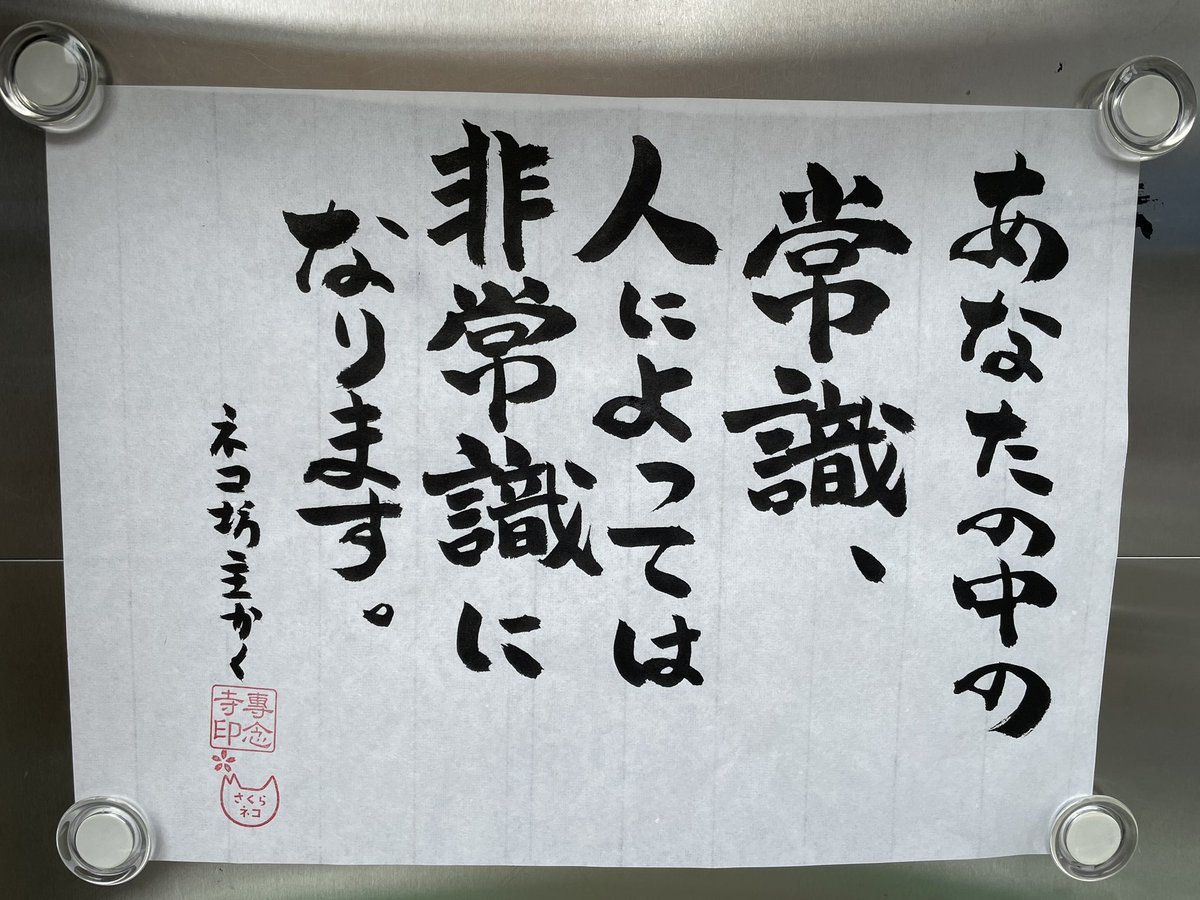 あなたの中の
常識、
人によっては
非常識に
なります。
ネコ坊主かく
專念
寺印
さくら
ネコ